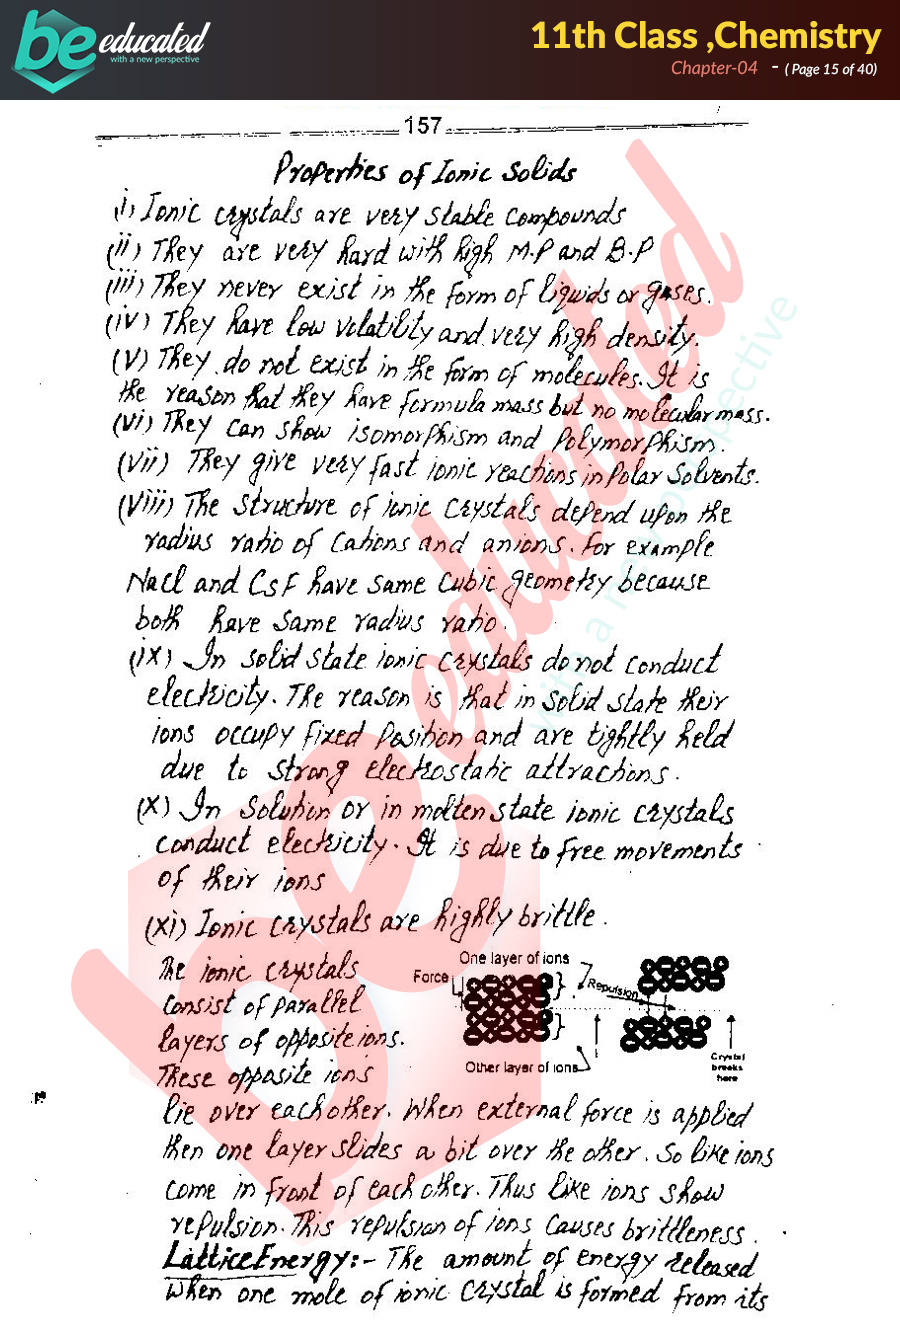 be educated
with a new perspective
11th Class ,Chemistry
Chapter-04 - ( Page 15 of 40)
157
Properties of Ionic Solids
(i) Ionic crystals are very stable compounds
(ii) They are very hard with high M.P and B.P
(iii) They never exist in the form of liquids or gases.
(iv) They have low volatility and very high density.
(v) They do not exist in the form of molecules. It is
the reason that they have formula mass but no molecular mass.
(vi) They can show isomorphism and Polymorphism.
(vii) They give very fast ionic reactions in Polar Solvents.
(viii) The structure of ionic crystals depend upon the
radius ratio of Cations and anions. For example
NaCl and CsF have same Cubic geometry because
both have same radius ratio.
(ix) In solid state ionic crystals do not conduct
electricity. The reason is that in solid state their
ions occupy fixed Position and are tightly held
due to strong electrostatic attractions.
(x) In Solution or in molten state ionic crystals
conduct electricity. It is due to free movements
of their ions
(xi) Ionic crystals are highly brittle.
The ionic crystals
consist of parallel
layers of opposite ions.
These opposite ions
One layer of ions
Force
Repulsion
Other layer of ions
Crystal
breaks
here
lie over each other. When external force is applied
then one layer slides a bit over the other. So like ions
come in front of each other. Thus like ions show
repulsion. This repulsion of ions causes brittleness.
Lattice Energy:- The amount of energy released
when one mole of ionic crystal is formed from its
be educated
with a new perspective